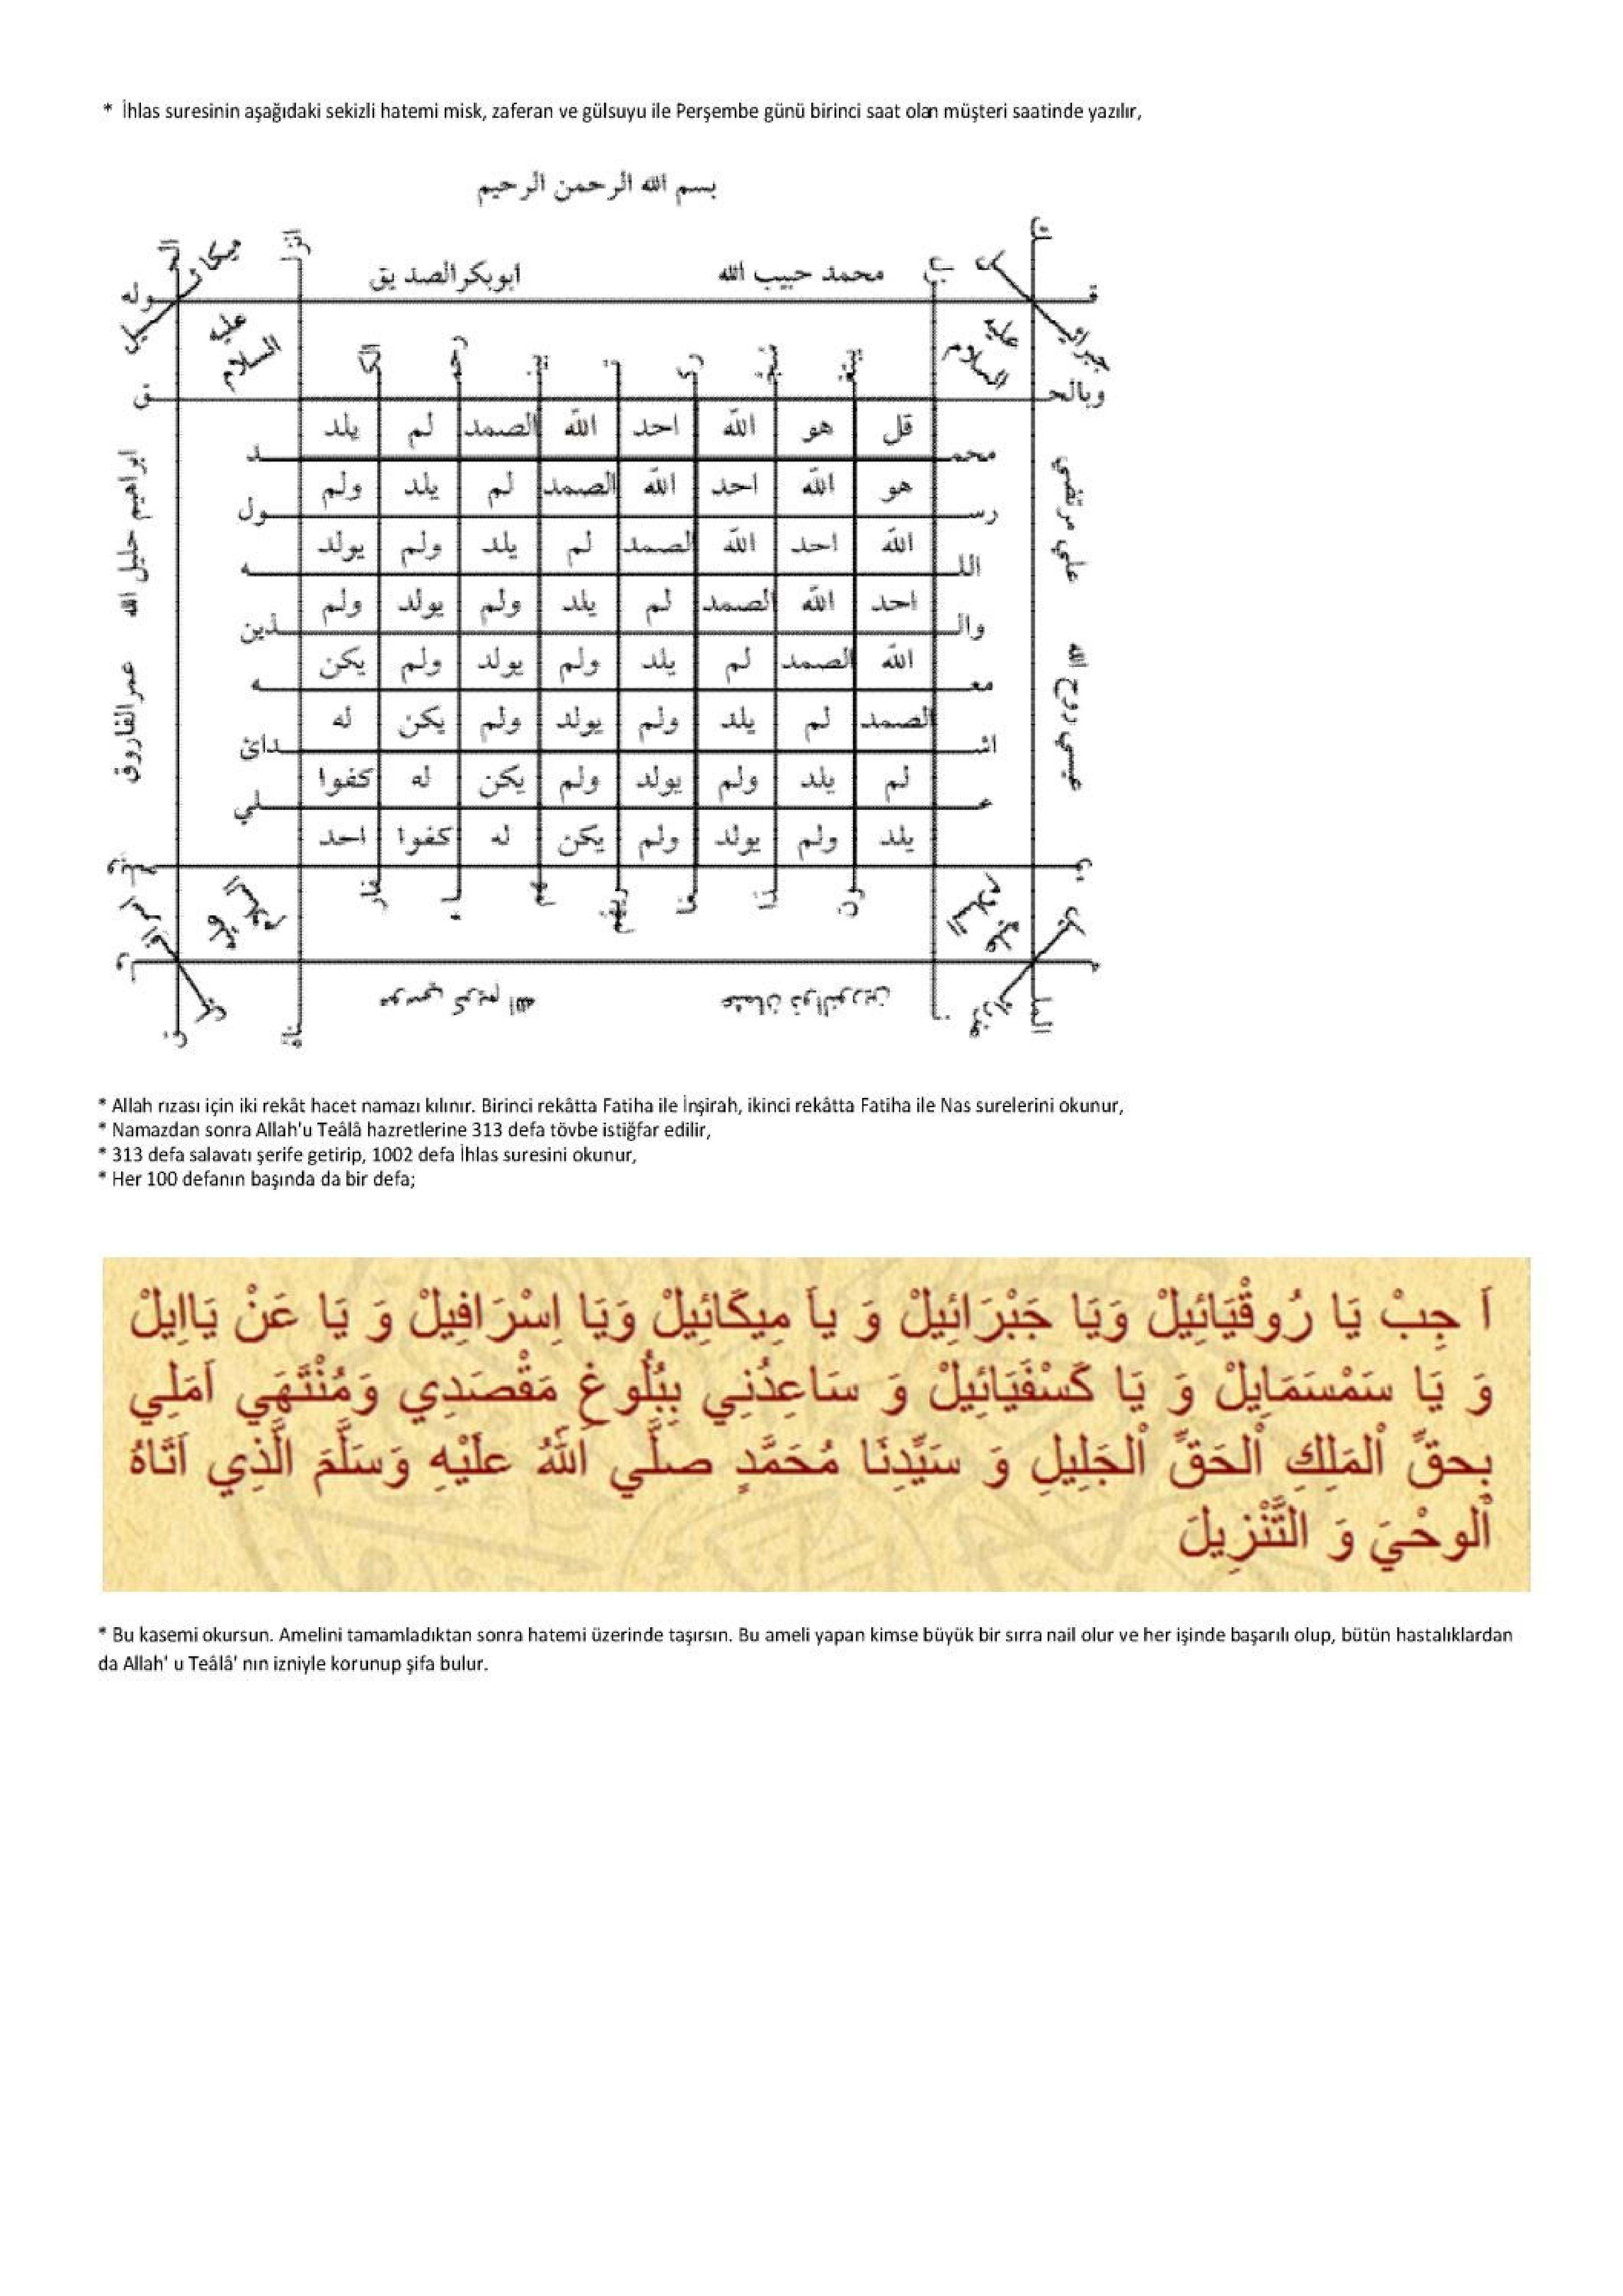 * İhlas suresinin aşağıdaki sekizli hatemi misk, zaferan ve gülsuyu ile Perşembe günü birinci saat olan müşteri saatinde yazılır,
بسم الله الرحمن الرحيم
محمد حبيب الله ابوبكر الصديق
ميكائيل عليه السلام
عليه السلام
قل هو الله احد الله الصمد لم يلد
محمد
هو الله احد الله الصمد لم يلد ولم
رسول
الله احد الله الصمد لم يلد ولم يولد
الله
احد الله الصمد لم يلد ولم يولد ولم
والذين
الله الصمد لم يلد ولم يولد ولم يكن
معه
الصمد لم يلد ولم يولد ولم يكن له
اشدائ
لم يلد ولم يولد ولم يكن له كفوا
علي
يلد ولم يولد ولم يكن له كفوا احد
علي مرتضي عيسي روح الله
ابراهيم خليل الله عمر الفاروق
عثمان ذوالنورين موسي كريم الله
* Allah rızası için iki rekât hacet namazı kılınır. Birinci rekâtta Fatiha ile İnşirah, ikinci rekâtta Fatiha ile Nas surelerini okunur,
* Namazdan sonra Allah'u Teâlâ hazretlerine 313 defa tövbe istiğfar edilir,
* 313 defa salavatı şerife getirip, 1002 defa İhlas suresini okunur,
* Her 100 defanın başında da bir defa;
اَ جِبْ يَا رُوقْيَائِيلْ وَيَا جَبْرَائِيلْ وَ ياَ مِيكَائِيلْ وَيَا اِسْرَافِيلْ وَ يَا عَنْ يَااِيلْ
وَ يَا سَمْسَمَايِلْ وَ يَا كَسْفَيَائِيلْ وَ سَاعِدُنِي بِبُلُوغِ مَقْصَدِي وَمُنْتَهَي اَمَلِي
بِحقِّ اْلمَلِكِ اْلحَقِّ اْلجَلِيلِ وَ سَيِّدِنَا مُحَمَّدٍ صلَّي اللهُ علَيْهِ وَسَلَّمَ الَّذِي اَتَاهُ
اْلوحْيَ وَ التَّنْزِيلَ
* Bu kasemi okursun. Amelini tamamladıktan sonra hatemi üzerinde taşırsın. Bu ameli yapan kimse büyük bir sırra nail olur ve her işinde başarılı olup, bütün hastalıklardan
da Allah' u Teâlâ' nın izniyle korunup şifa bulur.